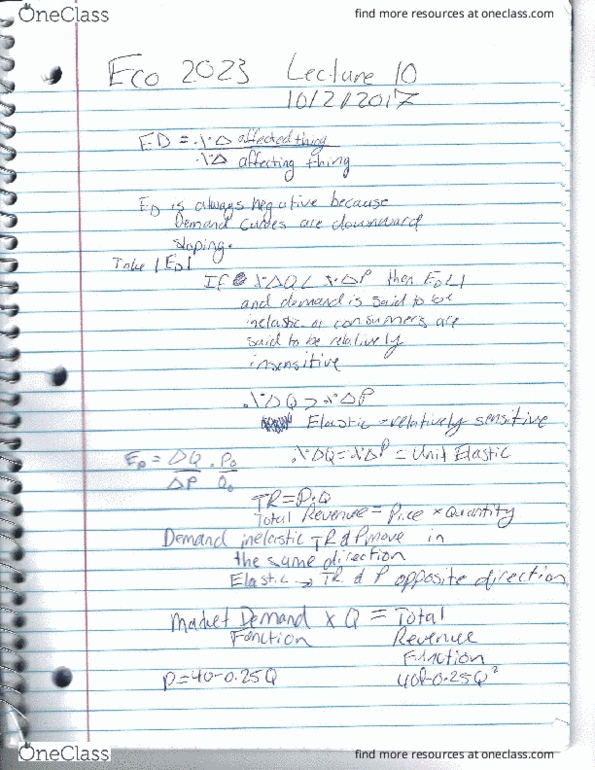 OneClass
find more resources at oneclass.com
Eco 2023 Lecture 10
10/2/2017
ED = .\∙Δ affected thing
.\∙Δ affecting thing
ED is always negative because
Demand curves are downward
sloping.
Take |ED|
If %ΔQ < %ΔP then ED<1
and demand is said to be
inelastic or consumers are
said to be relatively
insensitive
%ΔQ > %ΔP
Elastic = relatively sensitive
ED = ΔQ/ΔP · P0/Q0
%ΔQ = %ΔP = Unit Elastic
TR = P·Q
Total Revenue = Price × Quantity
Demand inelastic TR & P move in
the same direction
Elastic → TR & P opposite direction
Market Demand × Q = Total
Function Revenue
Function
P=40-0.25Q 40Q-0.25Q²
OneClass
find more resources at oneclass.com